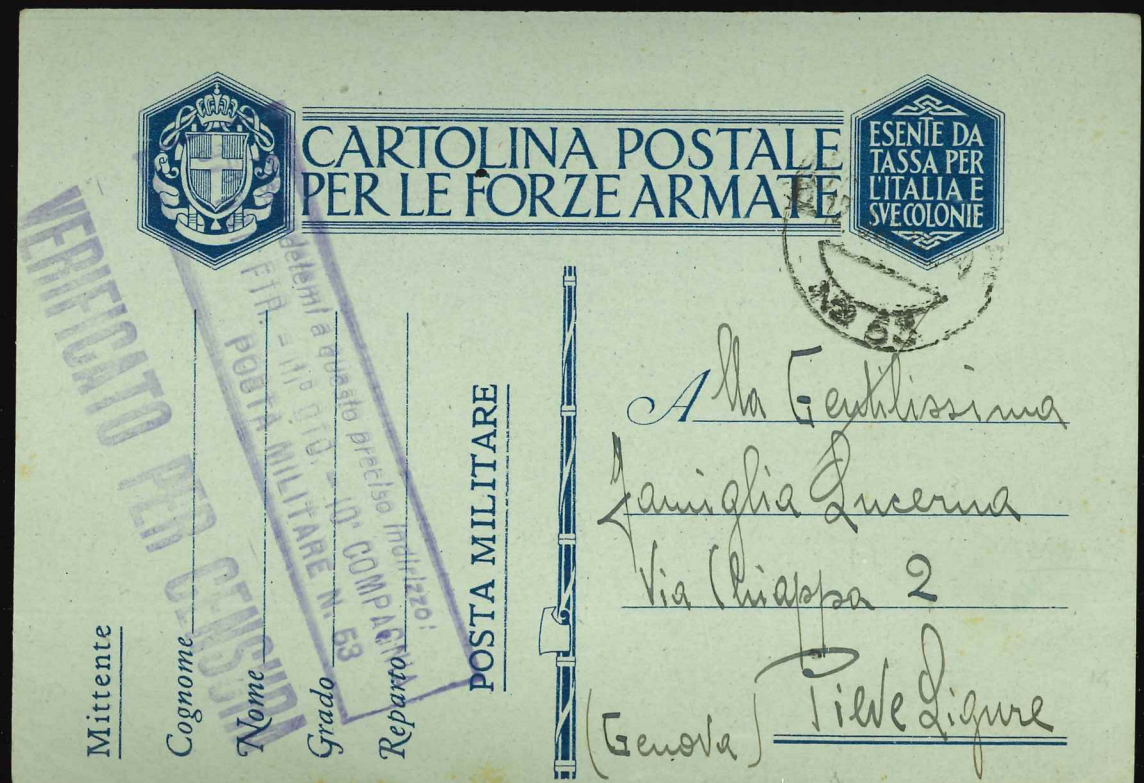 CARTOLINA POSTALE
PER LE FORZE ARMATE
ESENTE DA
TASSA PER
L'ITALIA E
SVE COLONIE
VERIFICATO PER CENSURA
a questo preciso indirizzo:
10ª COMPAGNIA
POSTA MILITARE N. 53
Mittente
Cognome
Nome
Grado
Reparto
POSTA MILITARE
No 53
Alla Gentilissima
Famiglia Lucerna
Via Chiappa 2
Pieve Ligure
(Genova)